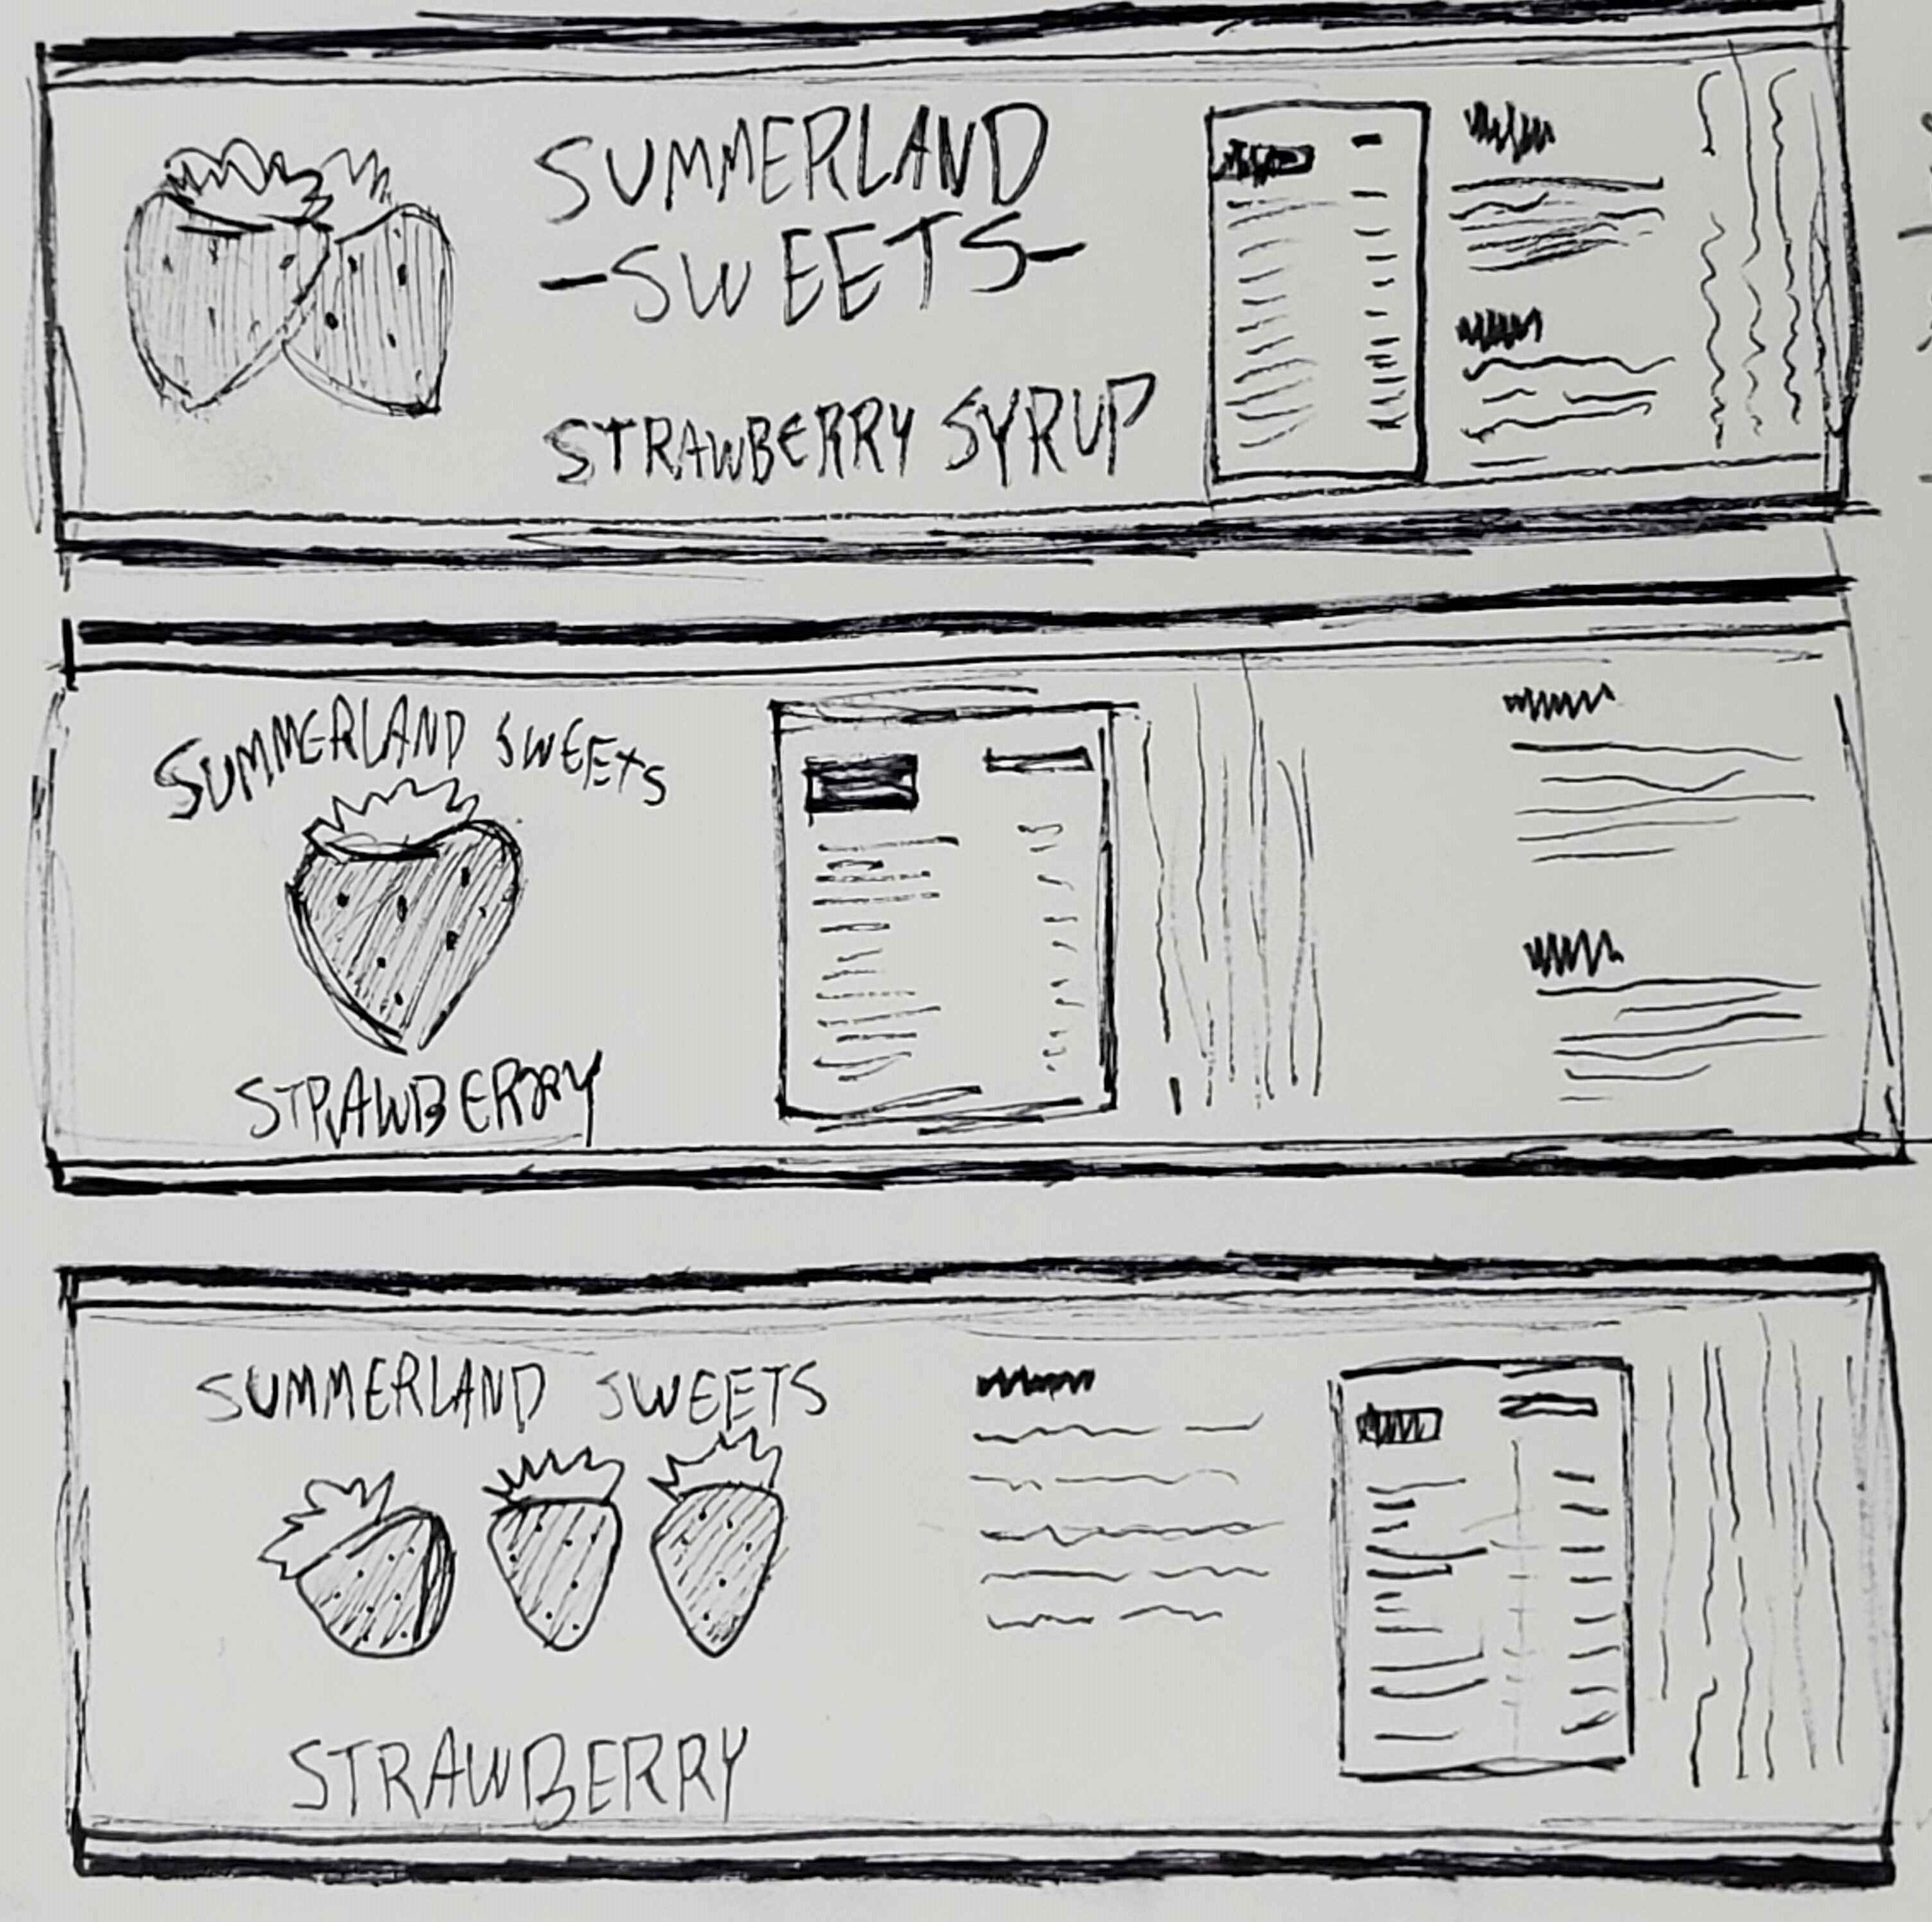 SUMMERLAND
-SWEETS-
STRAWBERRY SYRUP
SUMMERLAND SWEETS
STRAWBERRY
SUMMERLAND SWEETS
STRAWBERRY